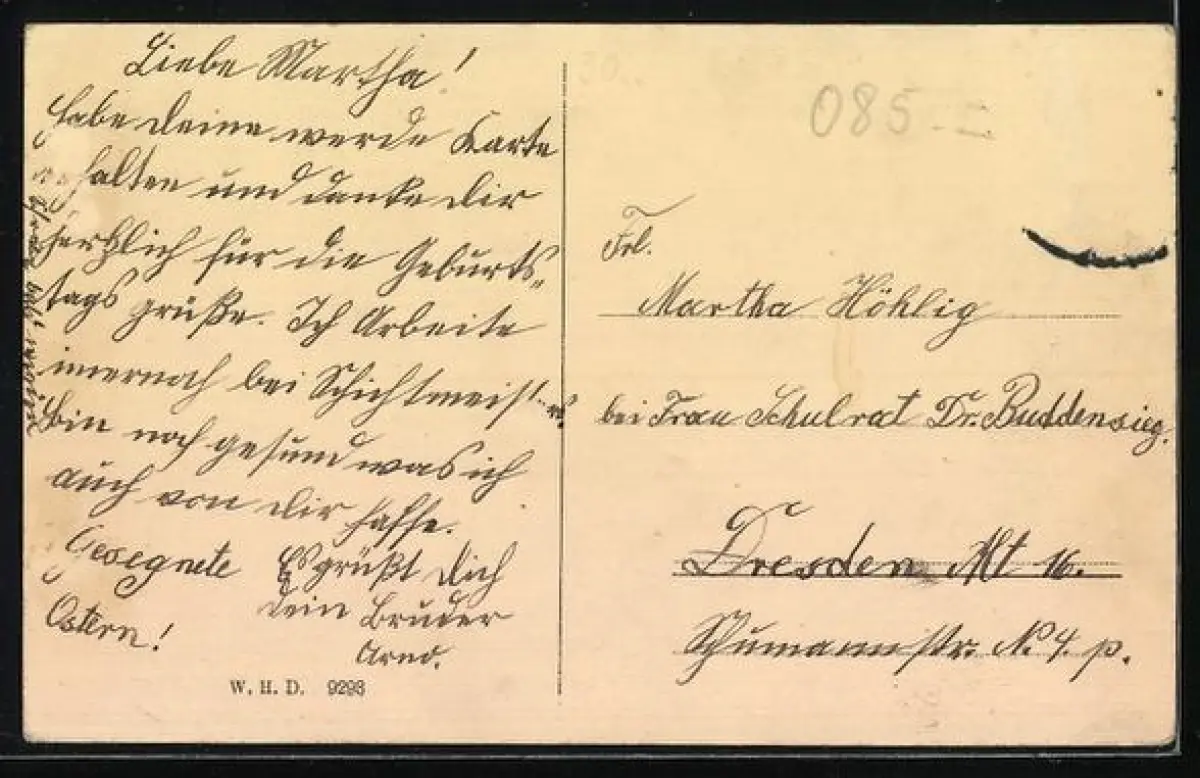 Liebe Martha!
Habe deine werde Karte
erhalten und danke dir
herzlich für die Geburts=
tags grüße. Ich Arbeite
immernoch bei Schichtmeister
Bin noch gesund was ich
auch von dir hoffe.
Gesegnete
Ostern!
Es grüßt dich
dein Bruder
Arno.
W. H. D. 9293
085
Frl.
Martha Höhlig
bei Frau Schulrat Dr. Buddensieg.
Dresden Alt 16.
Schumannstr. N. 4. p.